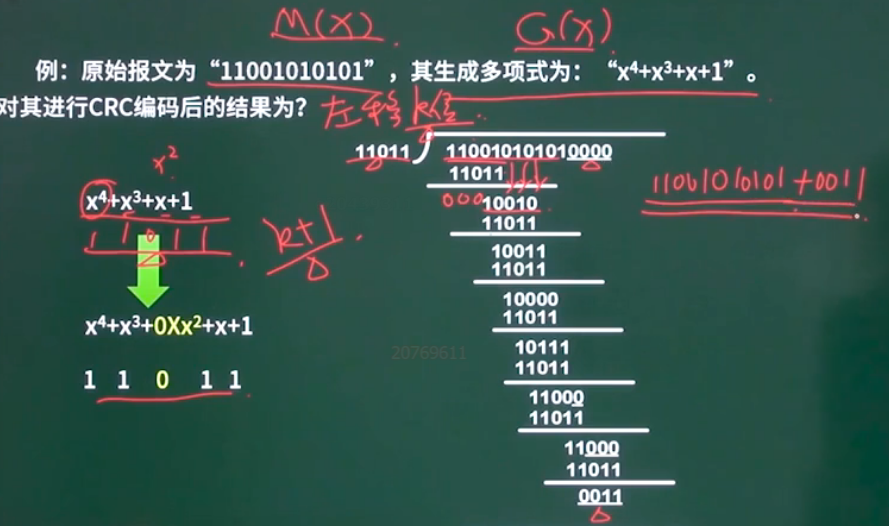 M(x) G(x)
例：原始报文为“11001010101”，其生成多项式为：“x⁴+x³+x+1”。
对其进行CRC编码后的结果为？
左移k位
11011 110010101010000
11011
00010010
11011
10011
11011
10000
11011
10111
11011
11000
11011
11000
11011
0011
x²
x⁴+x³+x+1
1 1 0 1 1
k+1
x⁴+x³+0Xx²+x+1
1 1 0 1 1
11001010101+0011
20769611